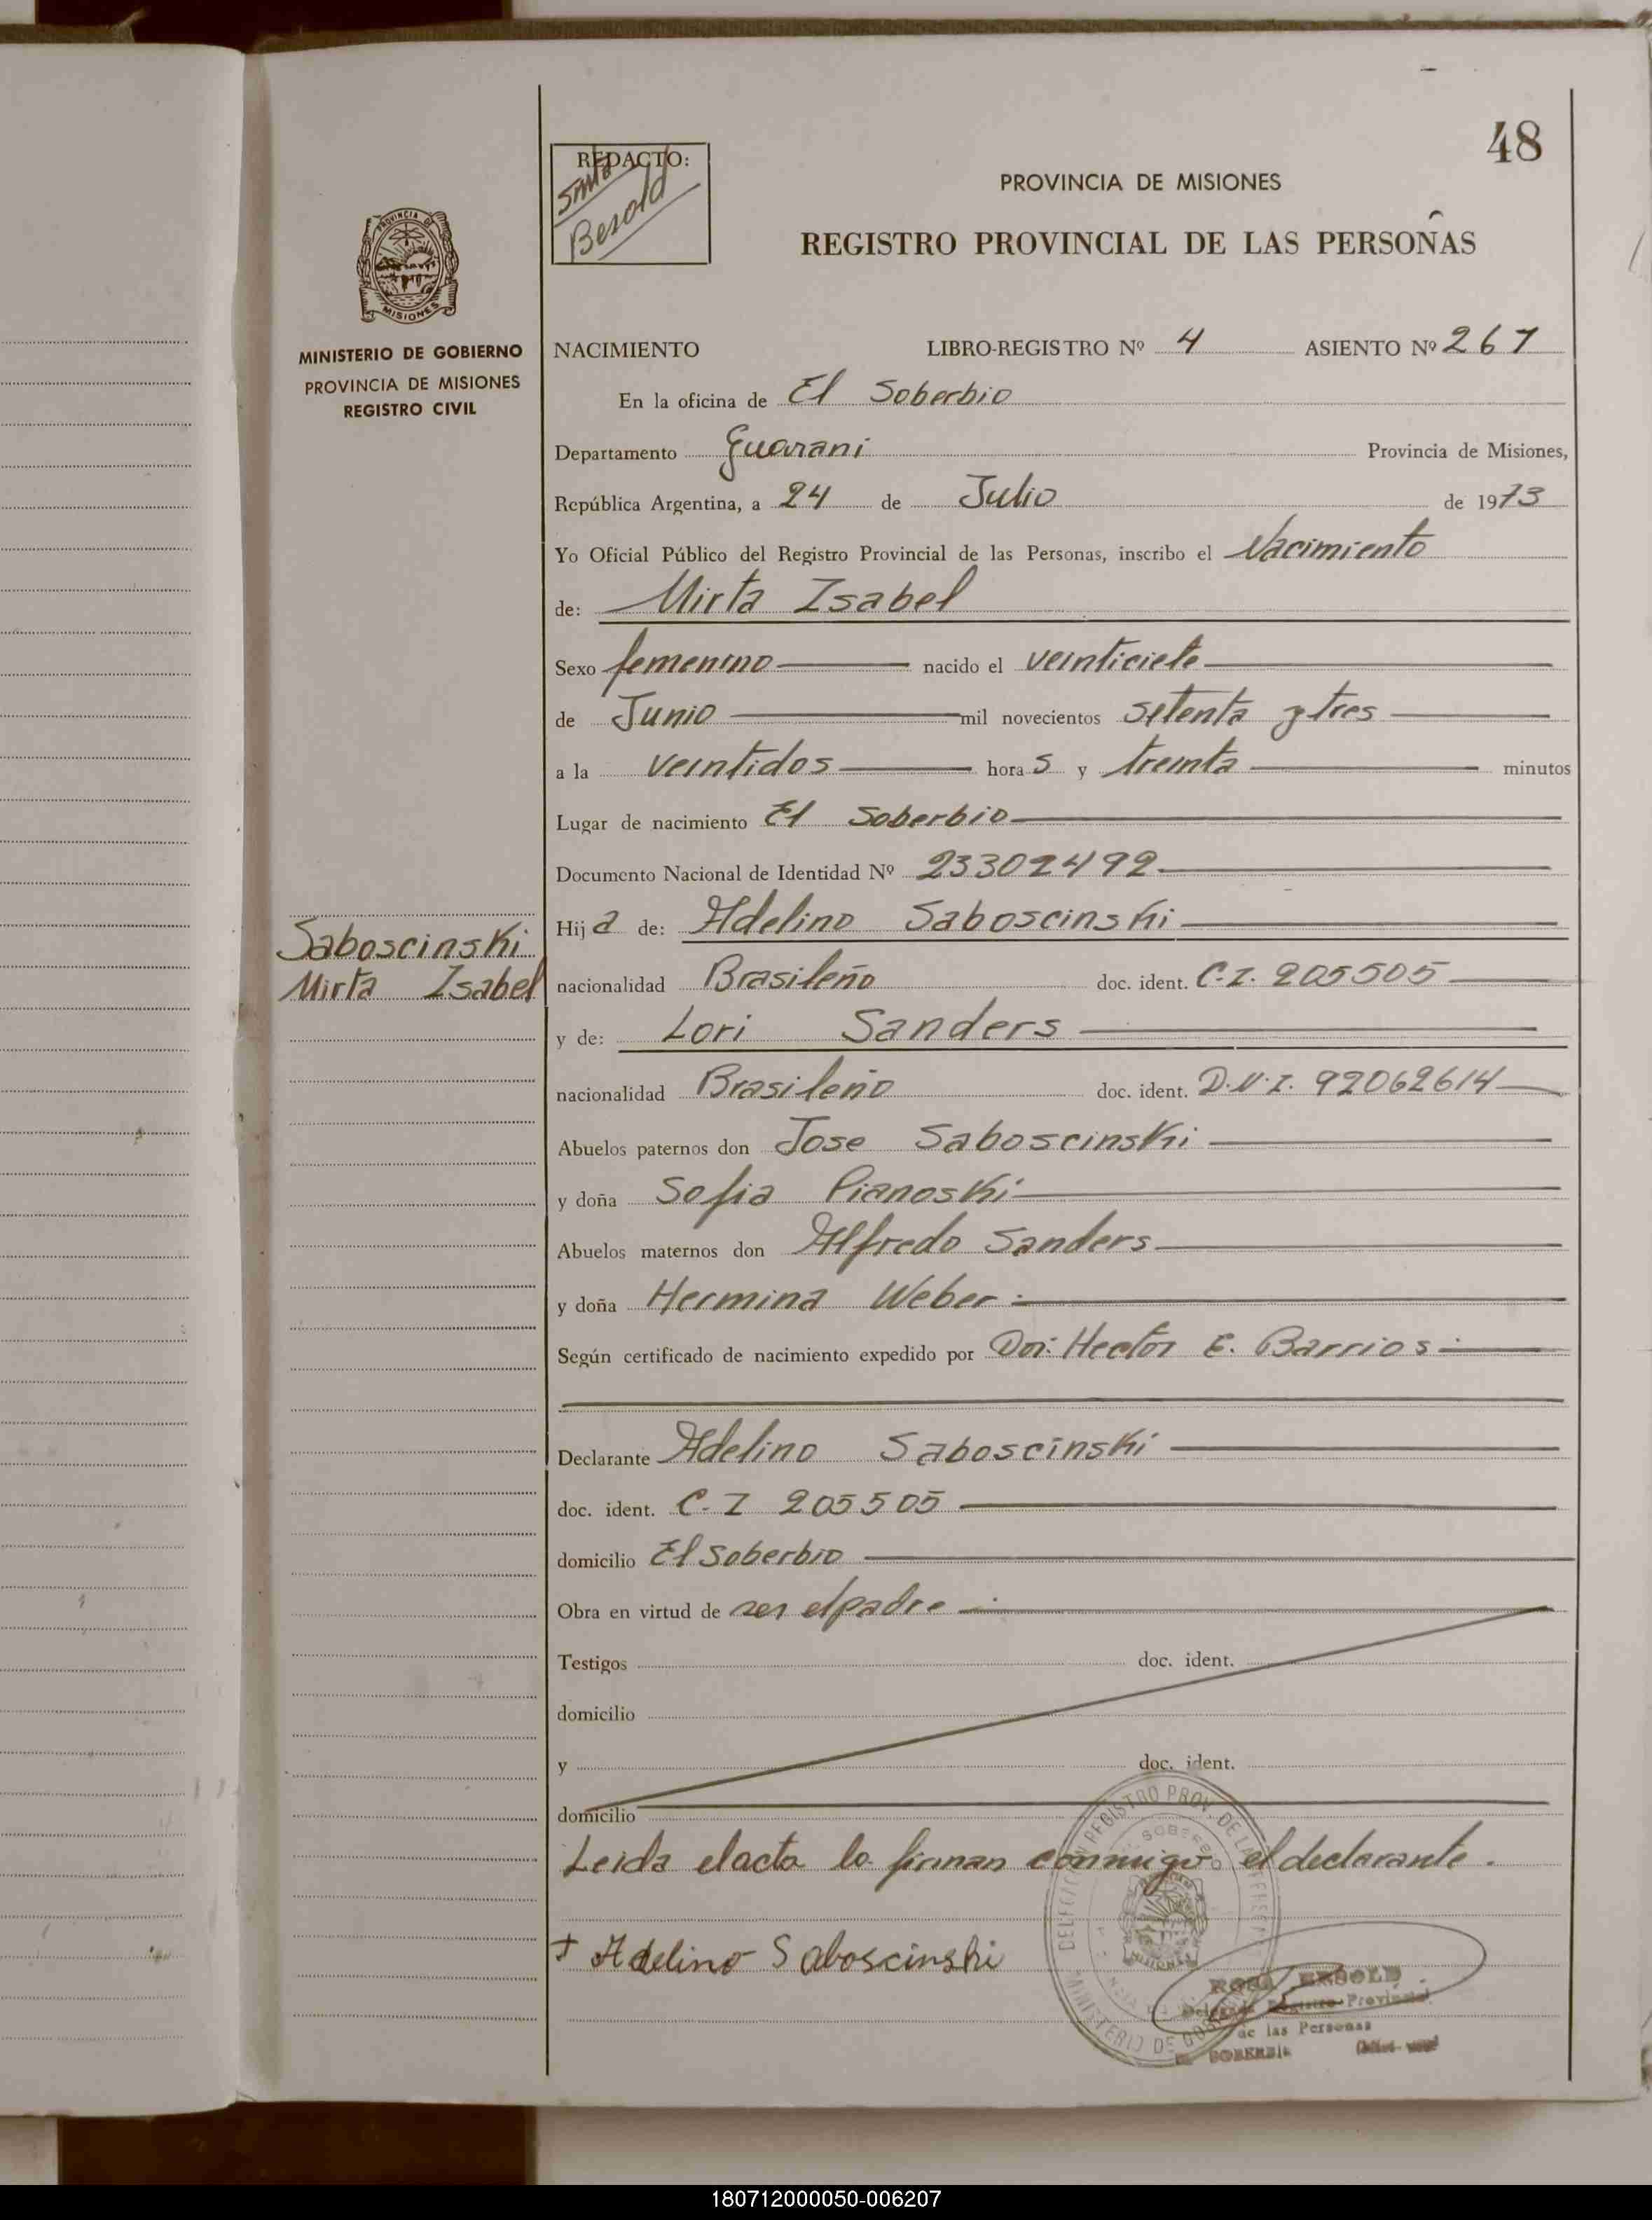 48
REDACTO:
Besold
PROVINCIA DE MISIONES
REGISTRO PROVINCIAL DE LAS PERSONAS
PROVINCIA DE
MISIONES
MINISTERIO DE GOBIERNO
PROVINCIA DE MISIONES
REGISTRO CIVIL
NACIMIENTO LIBRO-REGISTRO Nº 4 ASIENTO Nº 267
En la oficina de El Soberbio
Departamento Guarani Provincia de Misiones,
República Argentina, a 24 de Julio de 1973
Yo Oficial Público del Registro Provincial de las Personas, inscribo el Nacimiento
de: Mirta Isabel
Sexo femenino nacido el veinticiete
de Junio mil novecientos setenta y tres
a la veintidos horas y treinta minutos
Lugar de nacimiento El Soberbio
Documento Nacional de Identidad Nº 23302492
Hija de: Adelino Saboscinski
Saboscinski
Mirta Isabel
nacionalidad Brasileño doc. ident. C.I. 205505
y de: Lori Sanders
nacionalidad Brasileño doc. ident. D.N.I. 92062614
Abuelos paternos don Jose Saboscinski
y doña Sofia Pianoski
Abuelos maternos don Alfredo Sanders
y doña Hermina Weber
Según certificado de nacimiento expedido por Hector E. Barrios
Declarante Adelino Saboscinski
doc. ident. C-I 205505
domicilio El Soberbio
Obra en virtud de ser el padre
Testigos doc. ident.
domicilio
y doc. ident.
domicilio
Leida el acta la firman conmigo el declarante.
Adelino Saboscinski
REGISTRO PROV. DE LAS
MINISTERIO DE
BESOLD
Registro Provincial
de las Personas
180712000050-006207